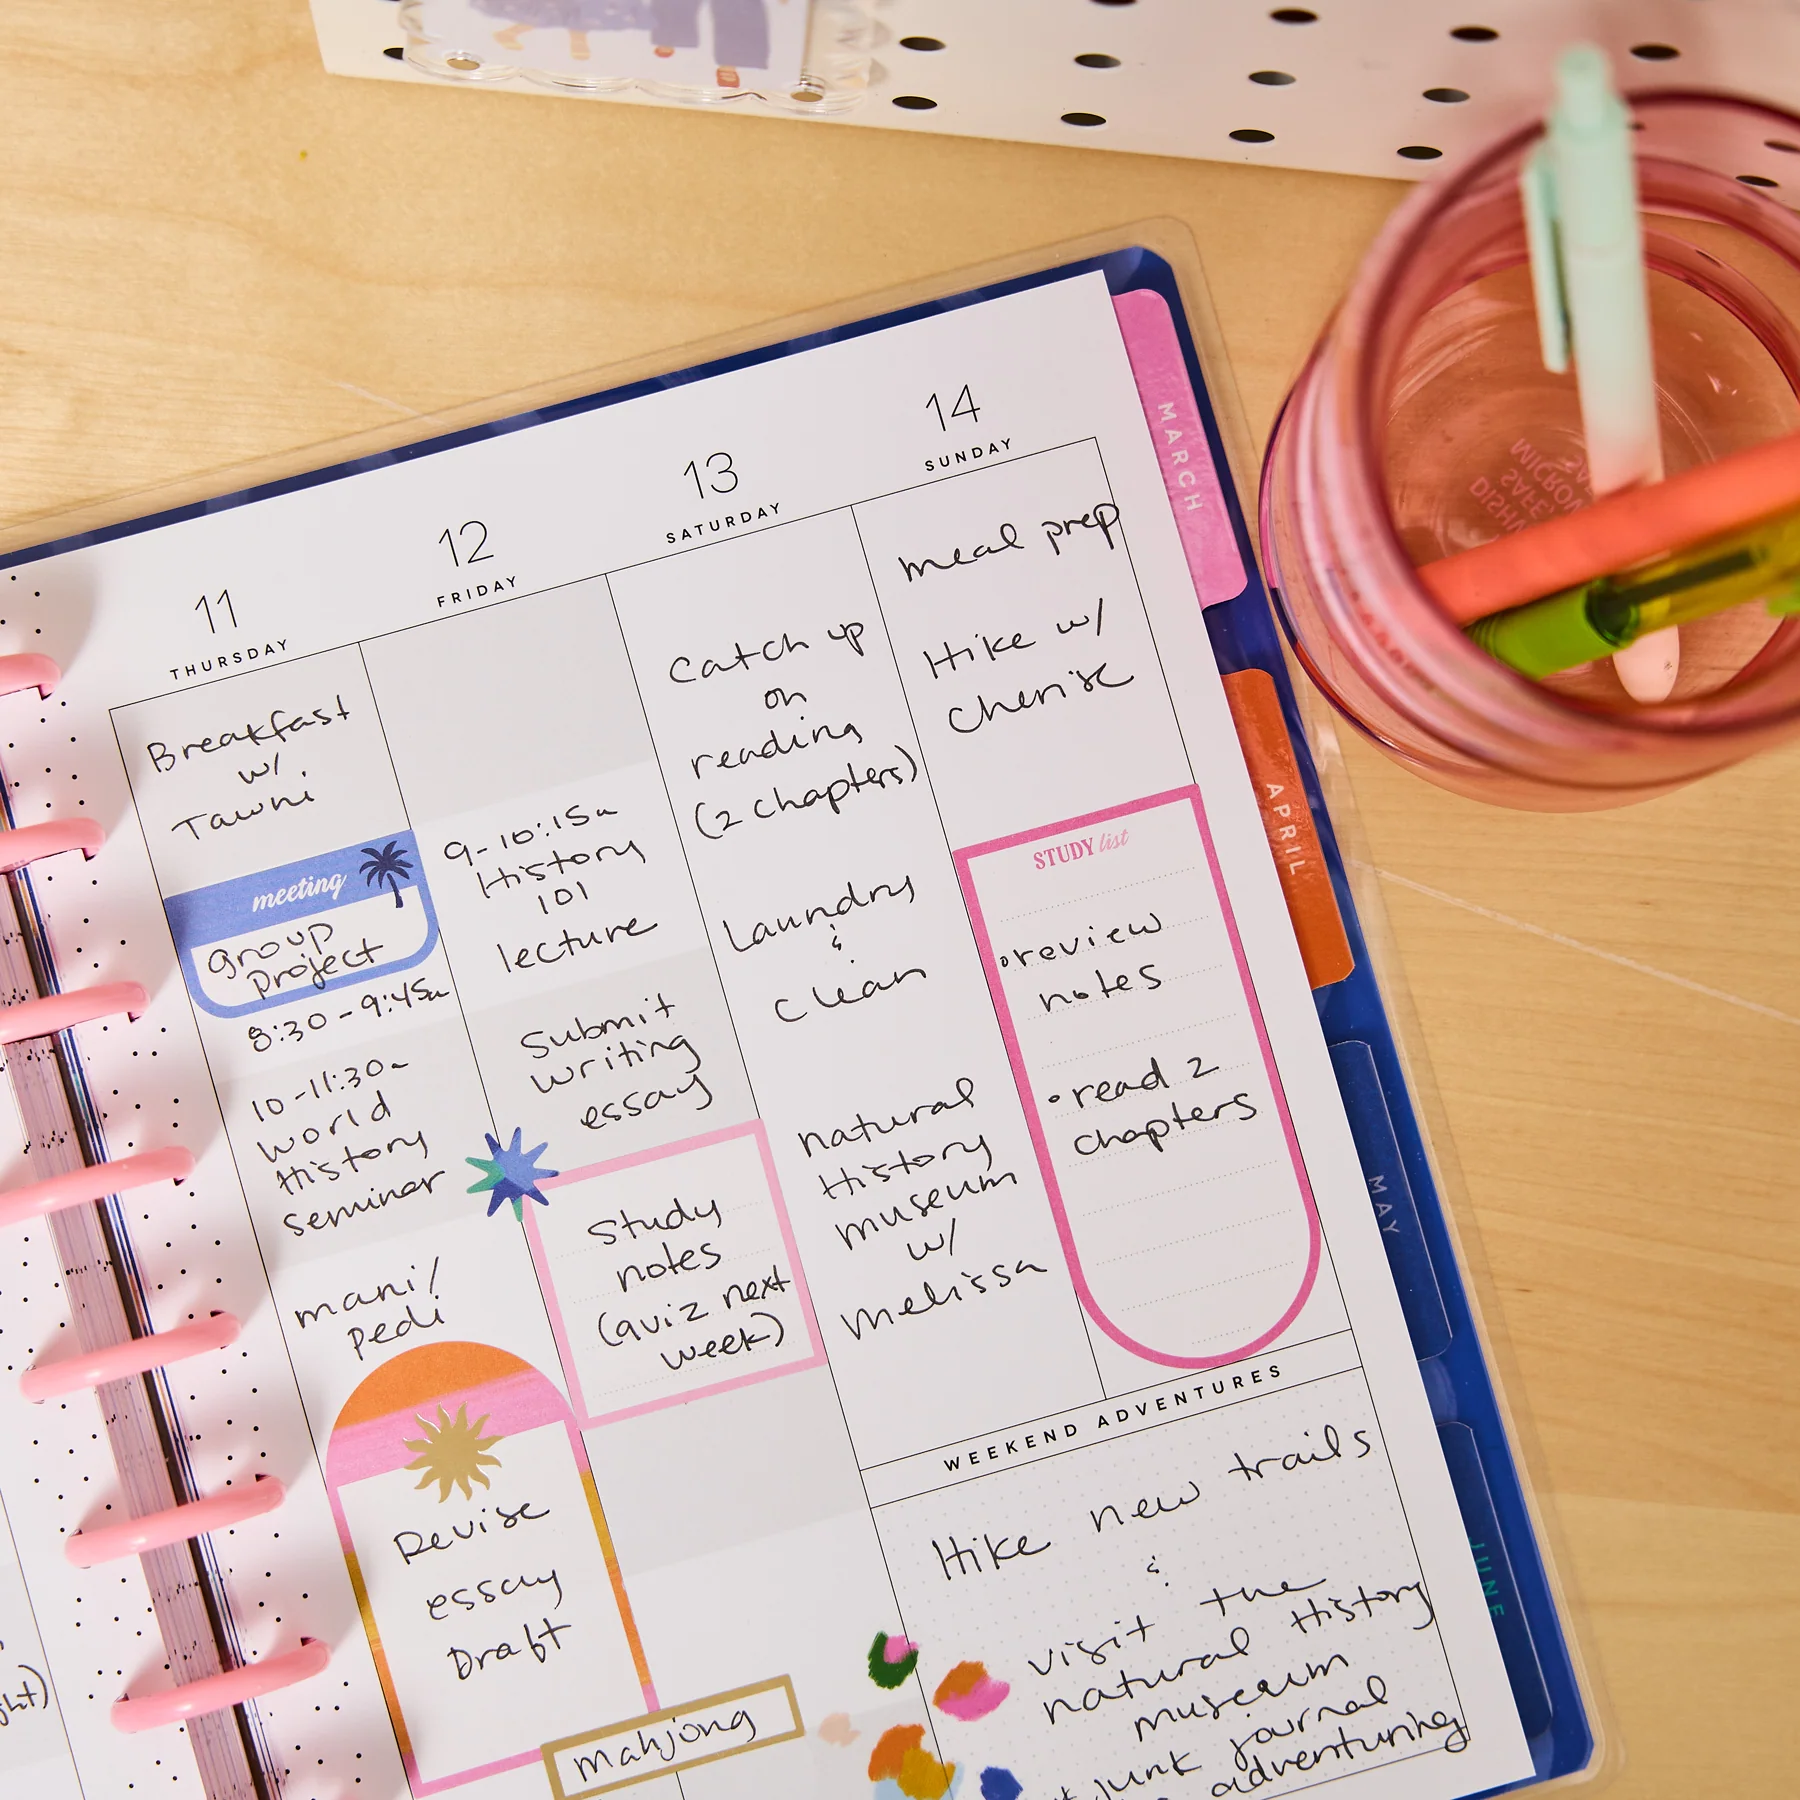 11
THURSDAY
Breakfast
w/
Tawni
meeting
group
project
8:30 - 9:45a
10-11:30a
World
History
seminar
mani/
pedi
Revise
essay
Draft
12
FRIDAY
9-10:15a
History
101
lecture
Submit
writing
essay
Study
notes
(quiz next
week)
mahjong
13
SATURDAY
Catch up
on
reading
(2 chapters)
Laundry
&
clean
natural
History
museum
w/
melissa
14
SUNDAY
meal prep
Hike w/
Cherise
STUDY list
• review
notes
• read 2
chapters
WEEKEND ADVENTURES
Hike new trails
&
visit the
natural History
museum
junk journal
adventuring
MARCH
APRIL
MAY
JUNE
MICROW
SAFE
DISHW